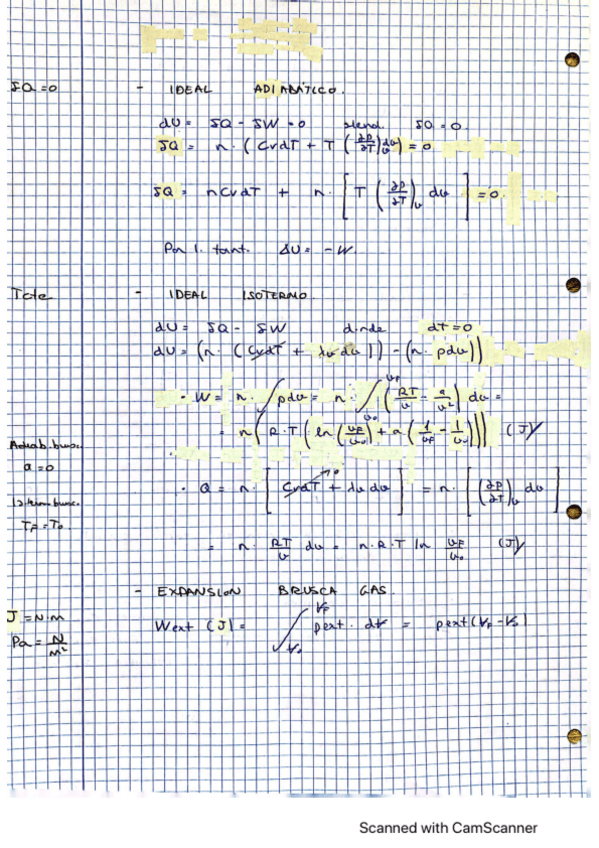 δQ=0
- IDEAL ADIABÁTICO.
dU = δQ - δW = 0 siend. δQ = 0.
δQ = n · ( CvdT + T (∂P/∂T)v dv ) = 0
δQ = n CvdT + n · [ T (∂P/∂T)v dv ] = 0.
Por l. tant. ΔU = - W.
T cte
- IDEAL ISOTERMO.
dU = δQ - δW donde dT = 0
dU = (n · ( CvdT + λv dv )) - (n · pdv))
· W = n · ∫ pdv = n · ∫ v0 vF ( RT/v - a/v² ) dv =
= n ( R · T ( ln (vF/v0) + a ( 1/vF - 1/v0 ))) (J)/
Adiab. brusc.
a = 0
· Q = n · [ CvdT → 0 + λv dv ] = n · [ (∂P/∂T)v dv ]
Isoterm brusc.
TF = T0
= n · RT/v dv = n · R · T ln vF/v0 (J)/
- EXPANSION BRUSCA GAS.
J = N·m
Wext (J) = ∫ V0 VF pext · dV = pext (VF - V0)
Pa = N/m²
Scanned with CamScanner